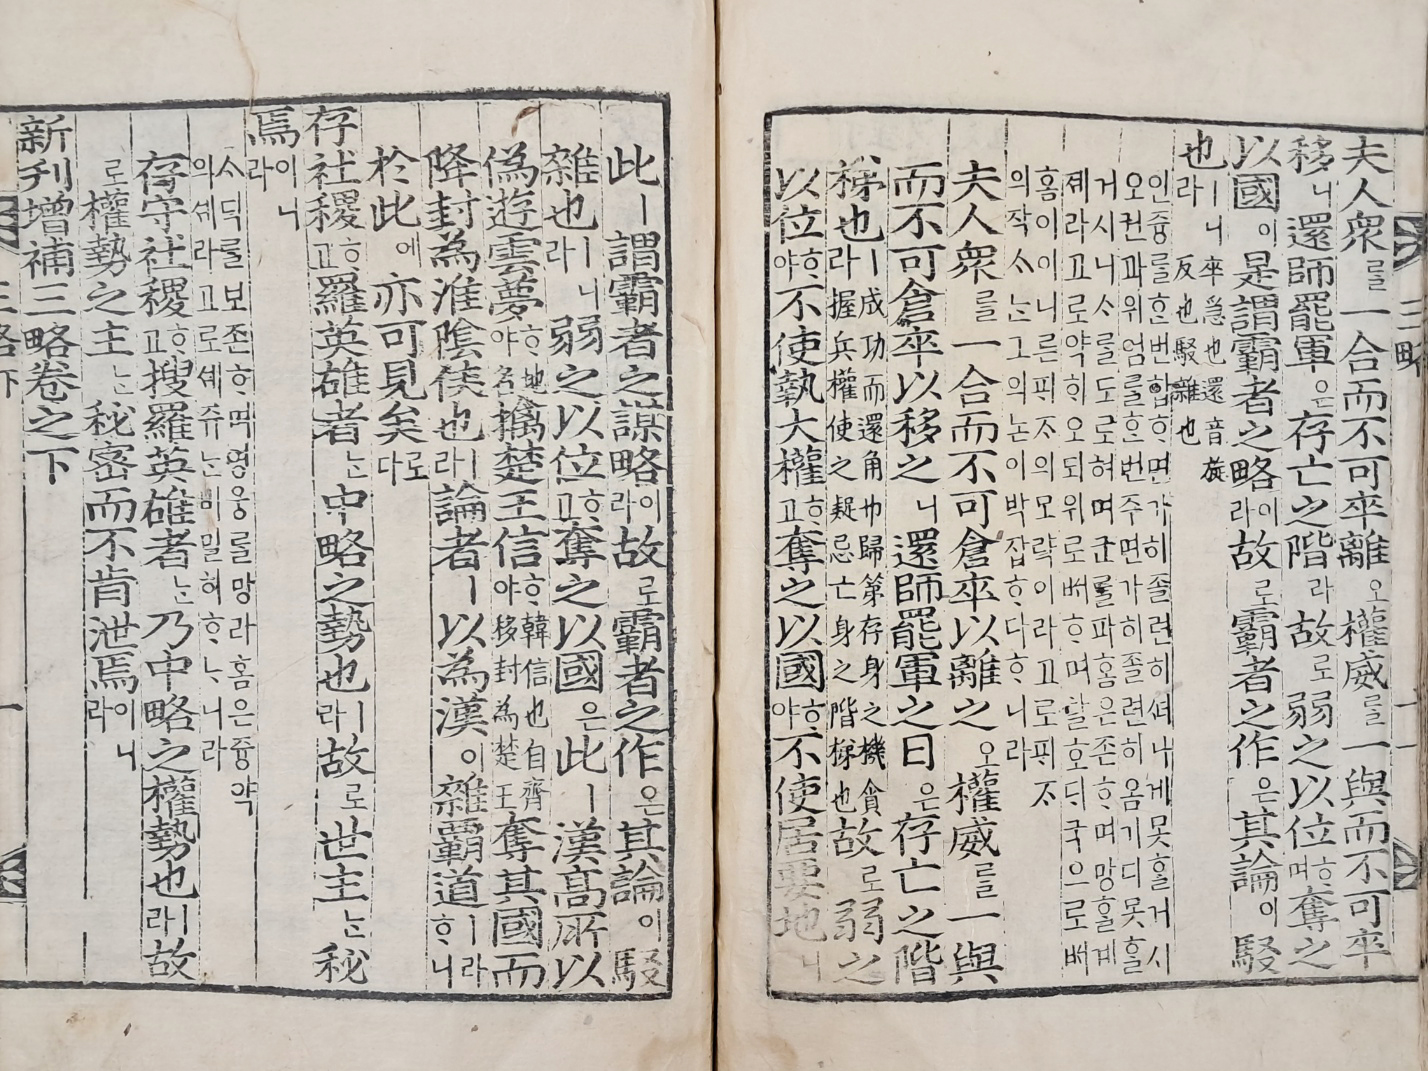 夫人衆를一合而不可卒離오權威를一與而不可卒
移니還師罷軍은存亡之階라故로弱之以位ᄒᆞ며奪之
以國이是謂霸者之略이라故로霸者之作은其論이駁
也ㅣ니라 卒急也還音旋反也駁雜也
인즁를ᄒᆞᆫ번합ᄒᆞ면가히졸련히ᄂᆞ게못ᄒᆞᆯ거시
오권과위엄를ᄒᆞᆫ번주면가히졸련히옴기디못ᄒᆞᆯ
거시니ᄉᆞ를도로혀며군를파홈은존ᄒᆞ며망ᄒᆞᆯ계
졔라고로약히오되위로ᄡᅥᄒᆞ며탈호ᄃᆡ국으로ᄡᅥ
홈이이니른픠ᄌᆞ의모략이라고로픠ᄌᆞ
의작ᄉᆞᄂᆞᆫ그의논이박잡ᄒᆞ다ᄒᆞ니라
夫人衆를一合而不可倉卒以離之오權威를一與
而不可倉卒以移之니還師罷軍之日은存亡之階
梯也ㅣ라成功而還角巾歸第存身之機貪握兵權使之疑忌亡身之階梯也故로弱之
以位ᄒᆞ야不使執大權ᄒᆞ고奪之以國ᄒᆞ야不使居要地니
三略 十一
此ㅣ謂霸者之謀略이라故로霸者之作은其論이駁
雜也ㅣ니라弱之以位ᄒᆞ고奪之以國은此ㅣ漢高所以
偽遊雲夢ᄒᆞ야地名擒楚王信ᄒᆞ야韓信也自齊移封為楚王奪其國而
降封為淮陰侯也라論者ㅣ以為漢이雜霸道ㅣ라ᄒᆞ니
於此에亦可見矣로다
存社稷ᄒᆞ고羅英雄者ᄂᆞᆫ中略之勢也ㅣ라故로世主ᄂᆞᆫ秘
焉이니라
ᄉᆞ딕를보존ᄒᆞ며영웅를망라홈은즁약
의셰라고로셰쥬ᄂᆞᆫ비밀혀ᄒᆞᄂᆞ니라
存守社稷ᄒᆞ고搜羅英雄者ᄂᆞᆫ乃中略之權勢也ㅣ라故
로權勢之主ᄂᆞᆫ秘密而不肯泄焉이니라
新刊增補三略卷之下
三略下